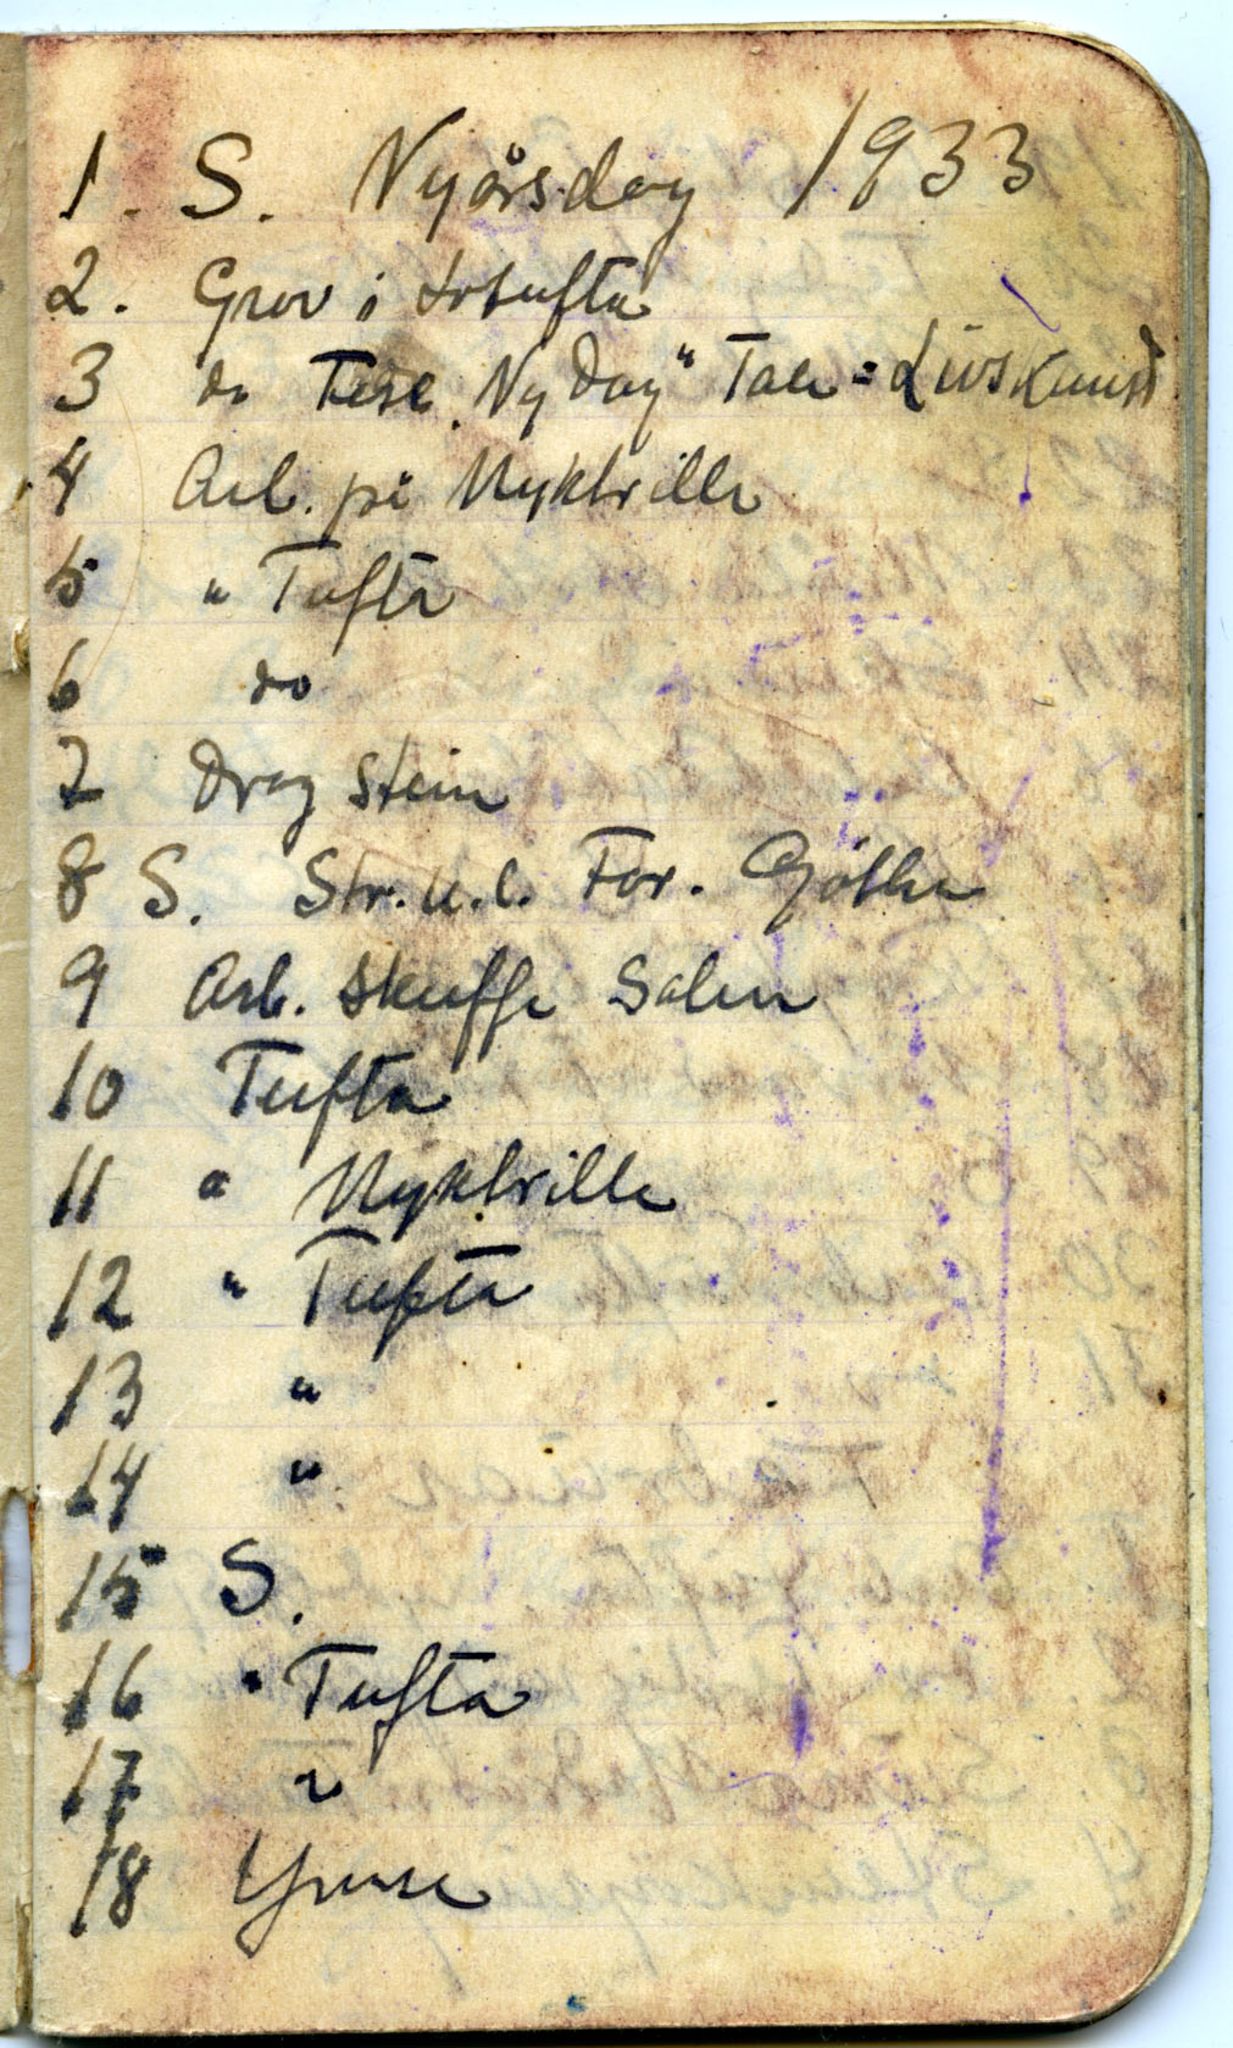 1. S. Nyårsdag 1933
2. Grov i tufta
3 do Fest „Ny Dag" Tale = Livskunst
4 Arb. på Myklville
5 " Tufta
6 do
7 Drog stein
8 S. Str. u.l. For.
9 Arb. Skuffe Salen
10 Tufta
11 " Myklville
12 " Tufta
13 "
14 "
15 S.
16 " Tufta
17 "
18 Ymse